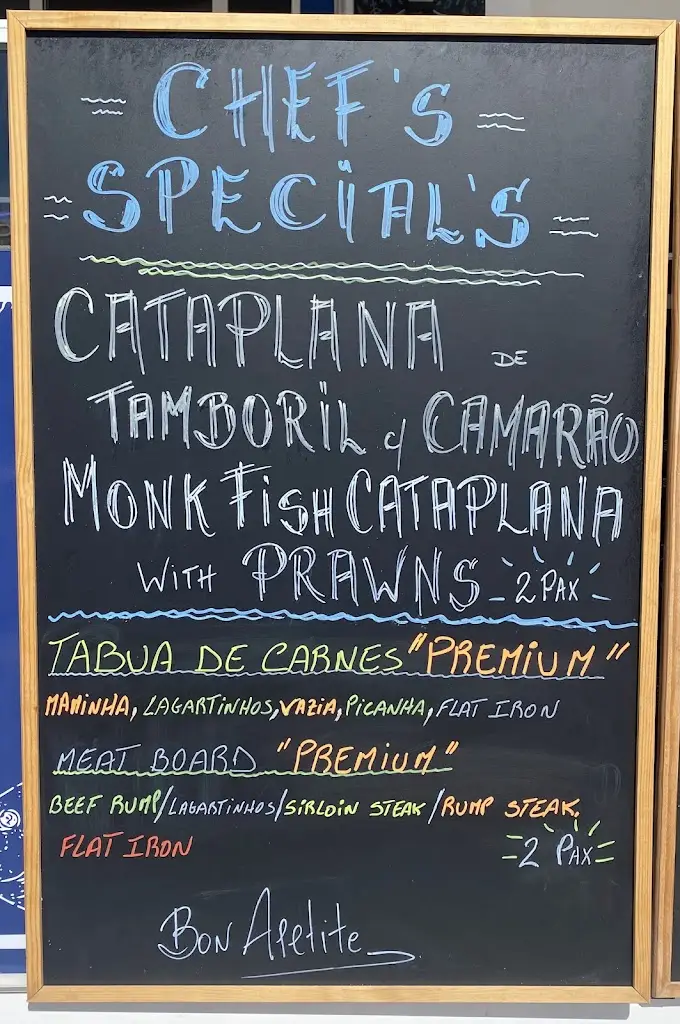 CHEF'S
SPECIAL'S
CATAPLANA DE
TAMBORIL c/ CAMARÃO
MONK FISH CATAPLANA
WITH PRAWNS 2 PAX
TABUA DE CARNES "PREMIUM"
MAMINHA, LAGARTINHOS, VAZIA, PICANHA, FLAT IRON
MEAT BOARD "PREMIUM"
BEEF RUMP/LAGARTINHOS/SIRLOIN STEAK/RUMP STEAK.
FLAT IRON 2 PAX
BON APETITE